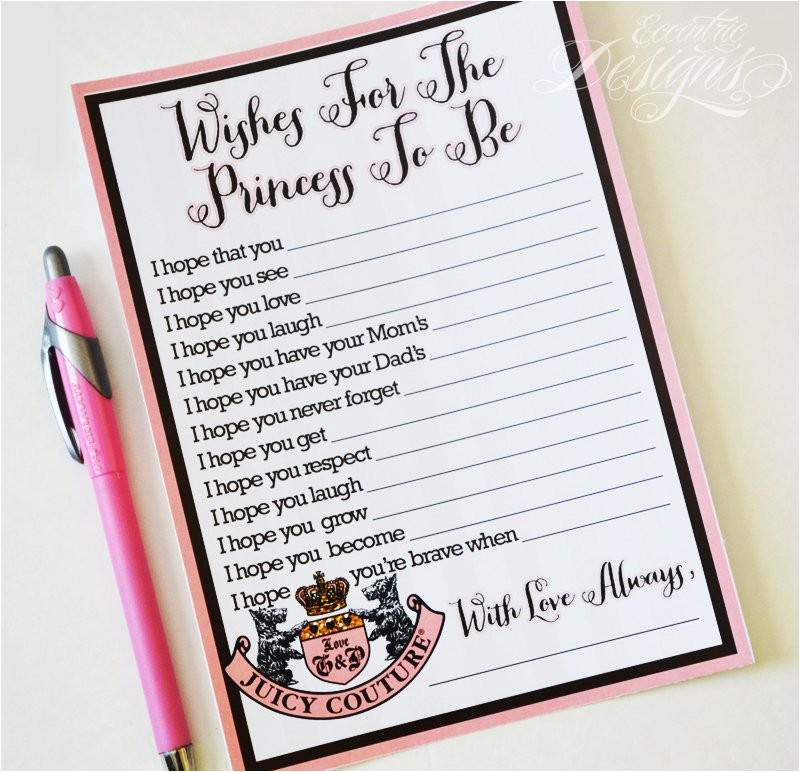 Eccentric
Designs
Wishes For The
Princess To Be
I hope that you
I hope you see
I hope you love
I hope you laugh
I hope you have your Mom's
I hope you have your Dad's
I hope you never forget
I hope you get
I hope you respect
I hope you laugh
I hope you grow
I hope you become
I hope you're brave when
With Love Always,
Love
G&P
JUICY COUTURE®